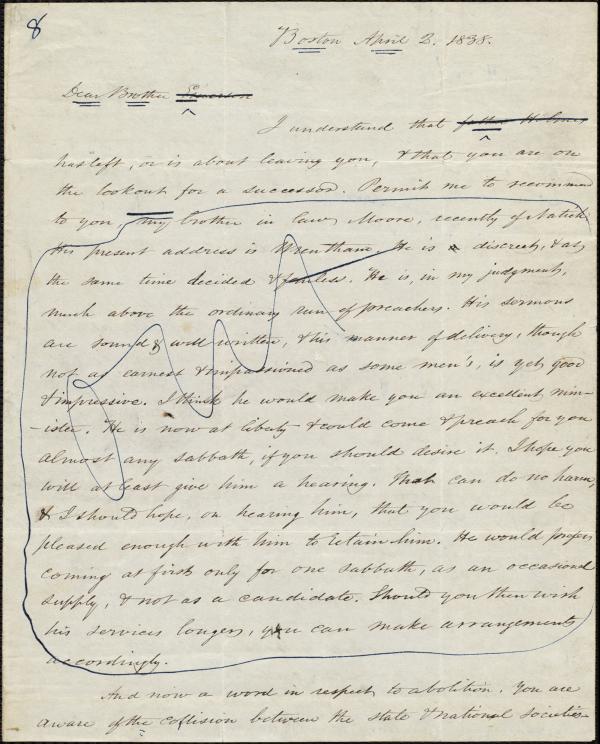 8
Boston April 2. 1838.
Dear Brother Emerson
I understand that father Holmes
has left, or is about leaving you, & that you are on
the lookout for a successor. Permit me to recommend
to you, my brother in law Moore, recently of Natick.
His present address is Wrentham. He is discreet, & at
the same time decided & fearless. He is, in my judgment,
much above the ordinary run of preachers. His sermons
are sound & well written, & his manner of delivery, though
not as earnest & impassioned as some men's, is yet good
& impressive. I think he would make you an excellent min-
-ister. He is now at liberty & could come & preach for you
almost any sabbath, if you should desire it. I hope you
will at least give him a hearing. That can do no harm,
& I should hope, on hearing him, that you would be
pleased enough with him to retain him. He would prefer
coming at first only for one sabbath, as an occasional
supply, & not as a candidate. Should you then wish
his services longer, you can make arrangements
accordingly.
And now a word in respect to abolition. You are
aware of the collision between the state & national societies